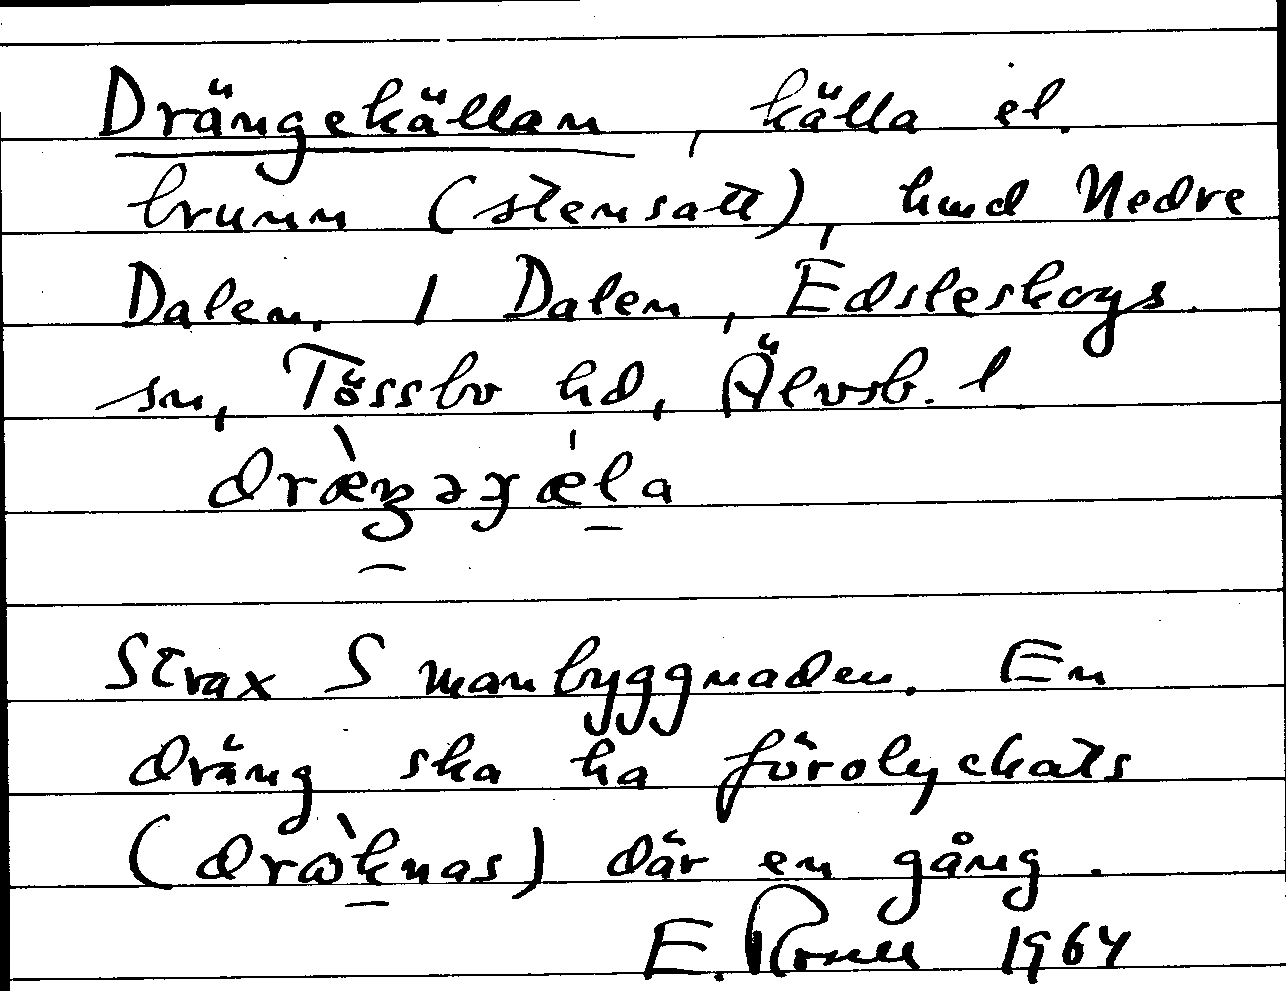 Drängekällan, källa el.
brunn (stensatt), hmd Nedre
Dalen, 1 Dalen, Edsleskogs
sn, Tössbo hd, Älvsb. l
Strax S manbyggnaden. En
dräng ska ha förolyckats
där en gång.
E. 1964